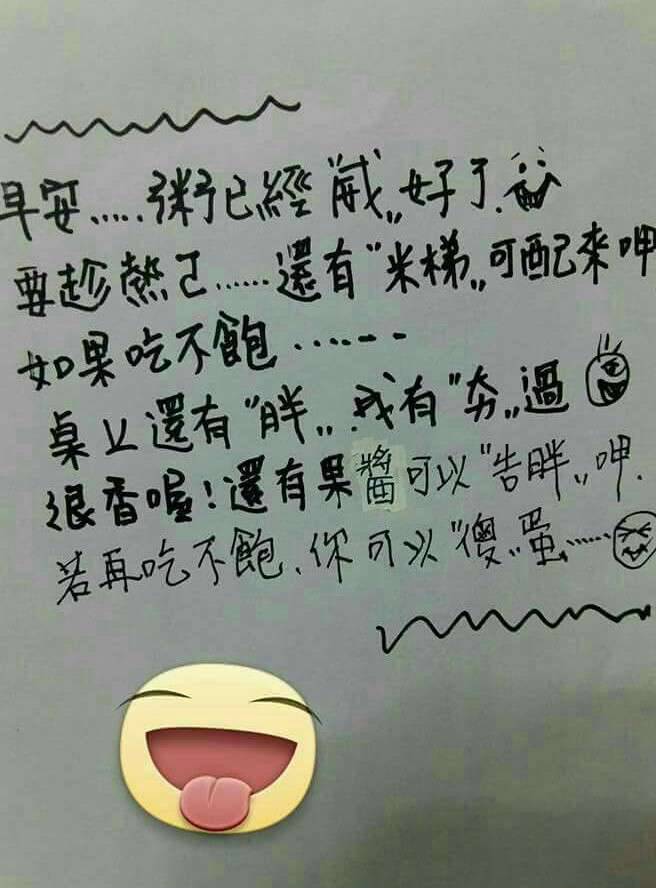 早安.....粥已經"威"好了.
要趁熱ㄛ......還有"米梯"可配來呷
如果吃不飽......
桌上還有"胖",我有"夯"過
很香喔!還有果醬可以"告胖"呷.
若再吃不飽.你可以"傻"蛋......